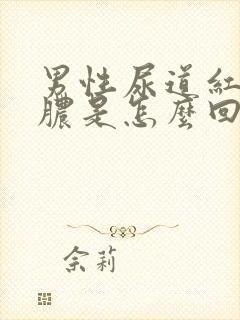 男性尿道紅
膿是怎麼回
佘莉